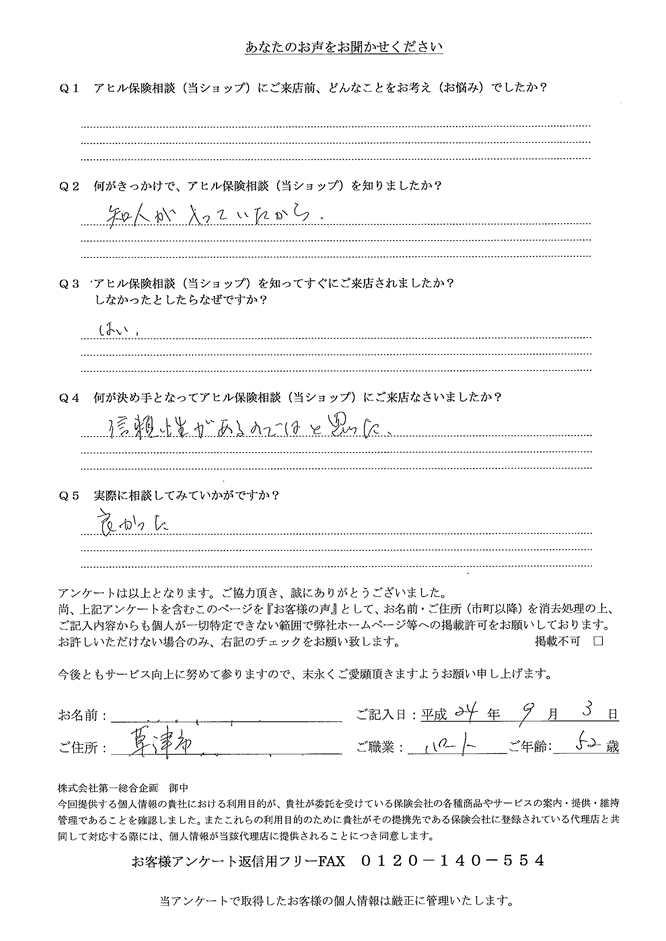 あなたのお声をお聞かせください
Q1 アヒル保険相談（当ショップ）にご来店前、どんなことをお考え（お悩み）でしたか？
Q2 何がきっかけで、アヒル保険相談（当ショップ）を知りましたか？
知人が入っていたから.
Q3 アヒル保険相談（当ショップ）を知ってすぐにご来店されましたか？
しなかったとしたらなぜですか？
はい.
Q4 何が決め手となってアヒル保険相談（当ショップ）にご来店なさいましたか？
信頼性があるのではと思った.
Q5 実際に相談してみていかがですか？
良かった
アンケートは以上となります。ご協力頂き、誠にありがとうございました。
尚、上記アンケートを含むこのページを『お客様の声』として、お名前・ご住所（市町以降）を消去処理の上、
ご記入内容からも個人が一切特定できない範囲で弊社ホームページ等への掲載許可をお願いしております。
お許しいただけない場合のみ、右記のチェックをお願い致します。 掲載不可 □
今後ともサービス向上に努めて参りますので、末永くご愛顧頂きますようお願い申し上げます。
お名前： ご記入日：平成 24 年 9 月 3 日
ご住所： 草津市 ご職業： パート ご年齢： 52 歳
株式会社第一総合企画 御中
今回提供する個人情報の貴社における利用目的が、貴社が委託を受けている保険会社の各種商品やサービスの案内・提供・維持
管理であることを確認しました。またこれらの利用目的のために貴社がその提携先である保険会社に登録されている代理店と共
同して対応する際には、個人情報が当該代理店に提供されることにつき同意します。
お客様アンケート返信用フリーFAX 0120－140－554
当アンケートで取得したお客様の個人情報は厳正に管理いたします。